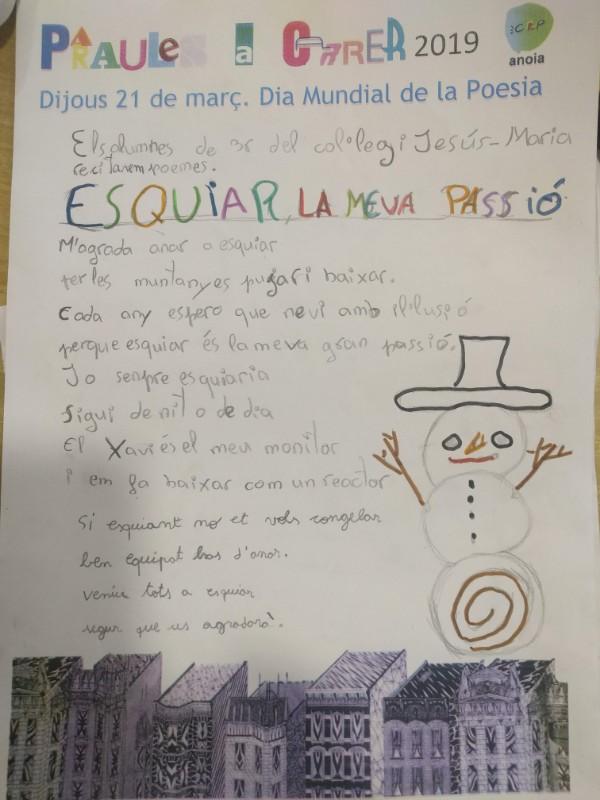 PARAULES a CARRER 2019
CRP
anoia
Dijous 21 de març. Dia Mundial de la Poesia
Els alumnes de 3r del col·legi Jesús-Maria
recitarem poemes.
ESQUIAR, LA MEVA PASSIÓ
M'agrada anar a esquiar
fer les muntanyes pujar i baixar.
Cada any espero que nevi amb il·lusió
perque esquiar és la meva gran passió.
Jo sempre esquiaria
sigui de nit o de dia
El Xavi és el meu monitor
i em fa baixar com un reactor
Si esquiant no et vols congelar
ben equipat has d'anar.
veniu tots a esquiar
segur que us agradarà.